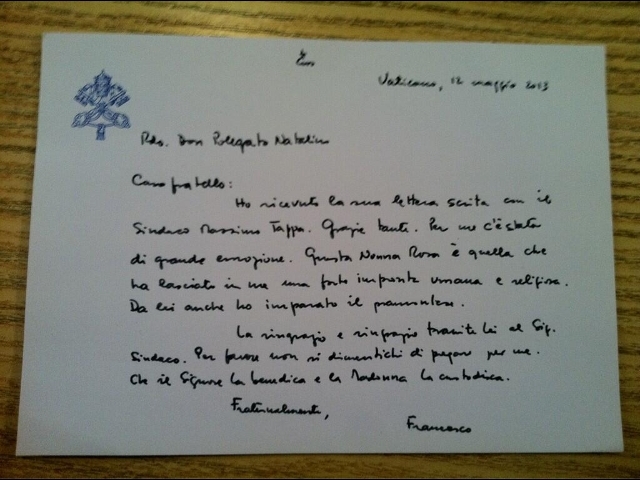 Vaticano, 12 maggio 2013
Rdo. Don Polegato Natalino
Caro fratello:
Ho ricevuto la sua lettera scritta con il
Sindaco Massimo Tappa. Grazie tante. Per me c'è stata
di grande emozione. Questa Nonna Rosa è quella che
ha lasciato in me una forte impronta umana e religiosa.
Da lei anche ho imparato il piamontese.
La ringrazio e ringrazio tramite lei al Sig.
Sindaco. Per favore non si dimentichi di pregare per me.
Che il Signore la benedica e la Madonna la custodisca.
Fraternalmente,
Francesco